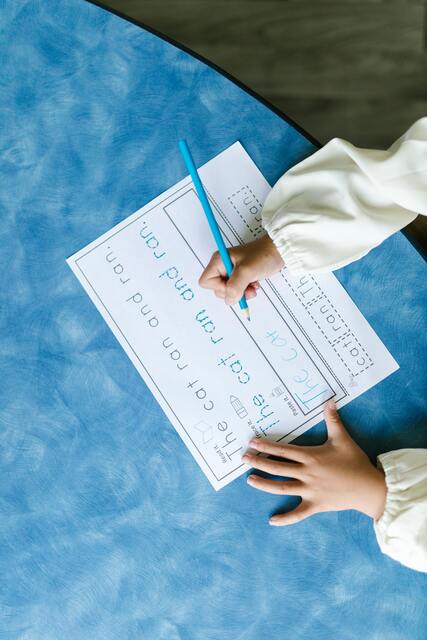 Read it.
The cat ran and ran.
Trace it.
The cat ran and ran.
Paste it.
The cat
cat ran Th ran.